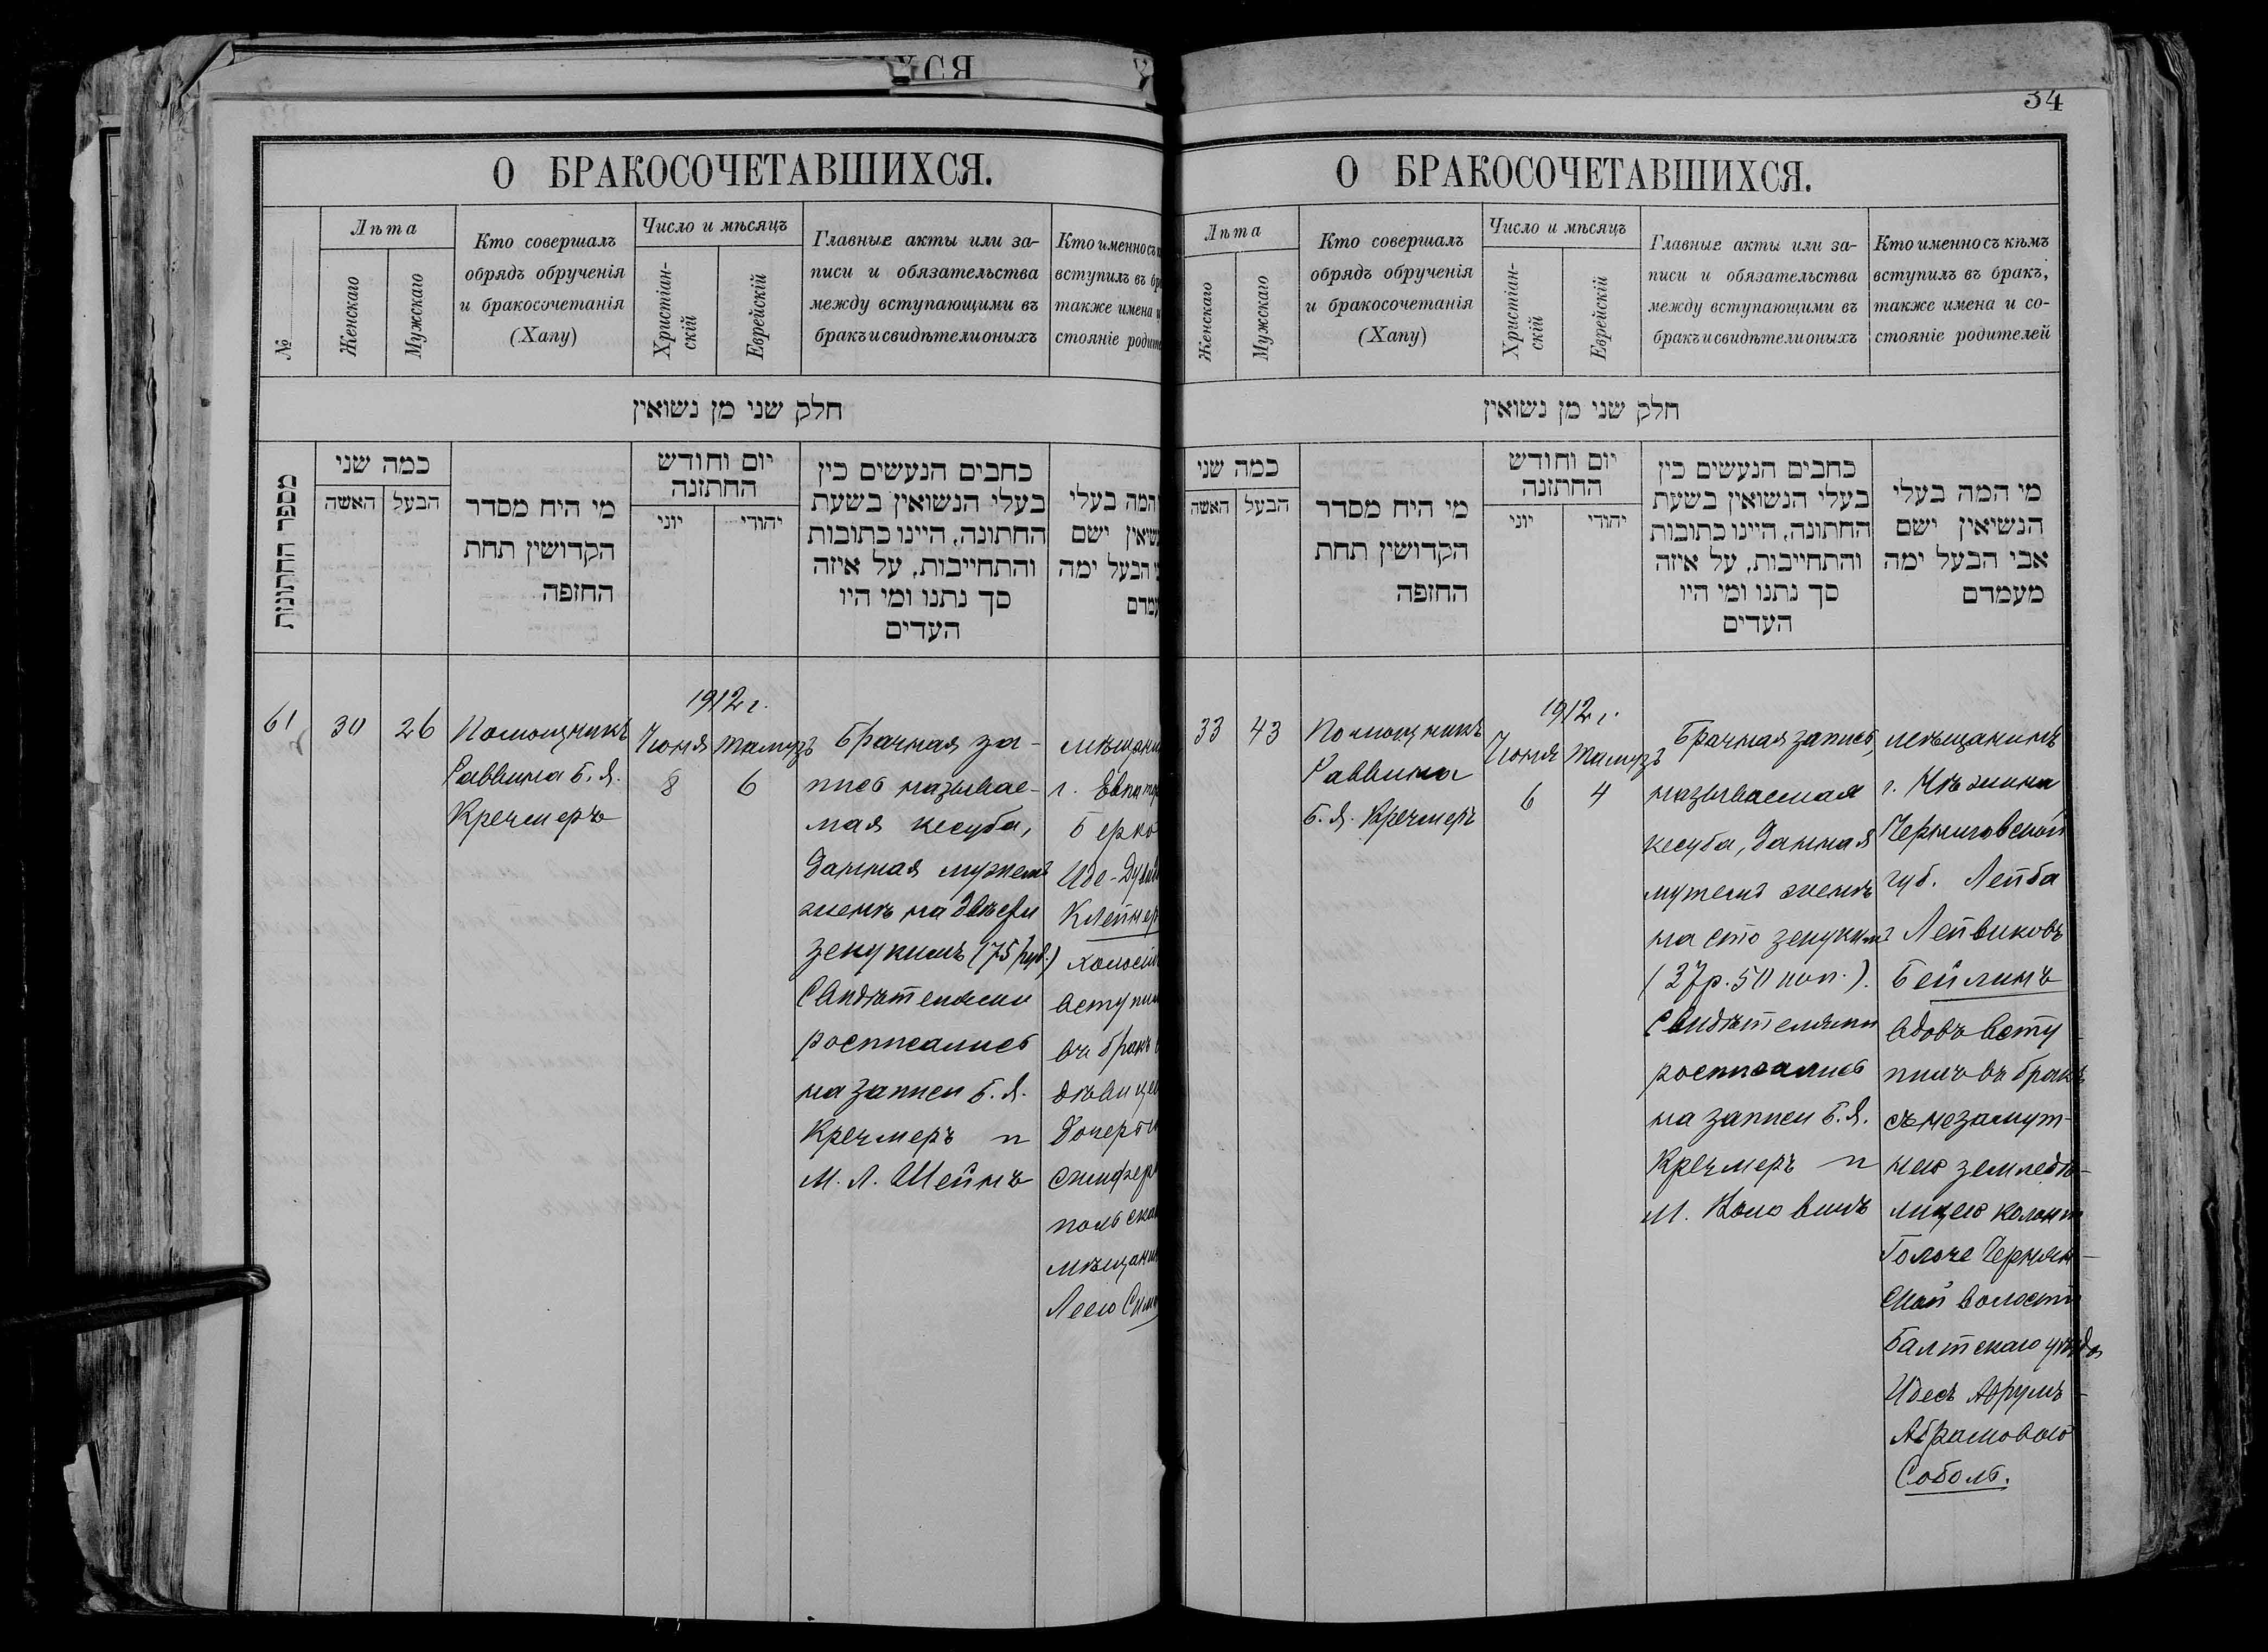 34
О БРАКОСОЧЕТАВШИХСЯ.
№
Лѣта
Женскаго
Мужскаго
Кто совершалъ
обрядъ обрученія
и бракосочетанія
(Хапу)
Число и мѣсяцъ
Христіан-
скій
Еврейскій
Главные акты или за-
писи и обязательства
между вступающими въ
бракъ и свидѣтели оныхъ
Кто именно съ
вступилъ въ
также имена
стояніе
חלק שני מן נשואין
מספר החתונות
כמה שני
האשה
הבעל
מי היח מסדר
הקדושין תחת
החופה
יום וחודש
החתונה
יוני
יהודי
כחבים הנעשים כין
בעלי הנשואין בשעת
החתונה, היינו כתובות
והתחייבות, על איזה
סך נתנו ומי היו
העדים
המה בעלי
ישם
הבעל ימה
61
30
26
Помощникъ
Раввина Б. Я.
Кречмеръ
1912 г.
Іюня
8
Тамузъ
6
Брачная за-
пись называе-
мая кесуба,
данная мужемъ
женѣ на двѣсти
зекукимъ (75 руб.)
Свидѣтелями
росписались
на записи Б. Я.
Кречмеръ и
М. Л. Шейнъ
г.
Иде-
въ бракъ
Лею
О БРАКОСОЧЕТАВШИХСЯ.
Лѣта
Женскаго
Мужскаго
Кто совершалъ
обрядъ обрученія
и бракосочетанія
(Хапу)
Число и мѣсяцъ
Христіан-
скій
Еврейскій
Главные акты или за-
писи и обязательства
между вступающими въ
бракъ и свидѣтели оныхъ
Кто именно съ кѣмъ
вступилъ въ бракъ,
также имена и со-
стояніе родителей
חלק שני מן נשואין
כמה שני
האשה
הבעל
מי היח מסדר
הקדושין תחת
החופה
יום וחודש
החתונה
יוני
יהודי
כחבים הנעשים כין
בעלי הנשואין בשעת
החתונה, היינו כתובות
והתחייבות, על איזה
סך נתנו ומי היו
העדים
מי המה בעלי
הנשיאין ישם
אבי הבעל ימה
מעמדם
33
43
Помощникъ
Раввина
Б. Я. Кречмеръ
1912 г.
Іюня
6
Тамузъ
4
Брачная запись,
называемая
кесуба, данная
мужемъ женѣ
на сто зекукимъ
(37 р. 50 коп.).
Свидѣтелями
росписались
на записи Б. Я.
Кречмеръ и
М.
мѣщанинъ
г. Нѣжина
Черниговской
губ. Лейба
Лейвиковъ
Бейлинъ
вдовъ всту-
пилъ въ бракъ
съ незамуж-
нею земледѣ-
лицею
Чернян-
ской волости
Балтскаго уѣзда
Идесъ Аврумъ-
Абрамовою
Соболь.